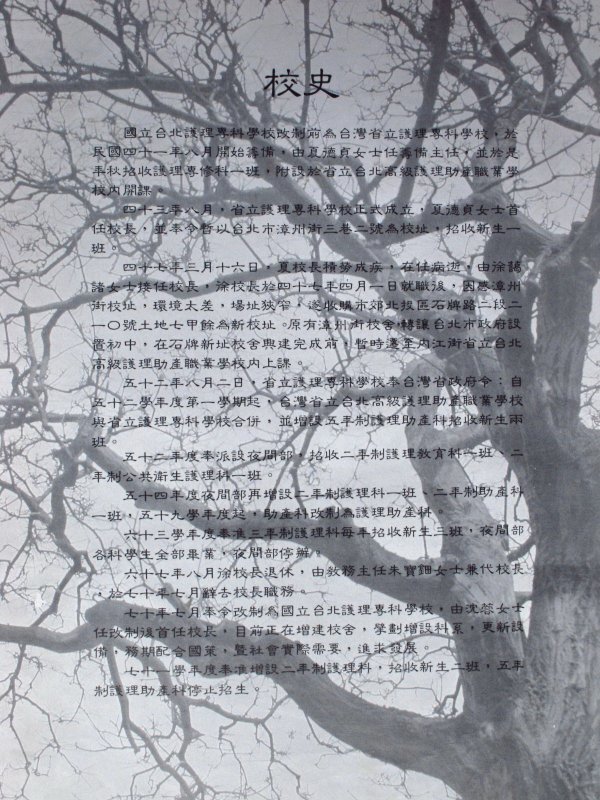 校史
國立台北護理專科學校改制前為台灣省立護理專科學校，於
民國四十一年八月開始籌備，由夏德貞女士任籌備主任，並於是
年秋招收護理專修科一班，附設於省立台北高級護理助產職業學
校內開課。
四十三年八月，省立護理專科學校正式成立，夏德貞女士首
任校長，並奉令暫以台北市漳州街三巷二號為校址，招收新生一
班。
四十七年三月十六日，夏校長積勞成疾，在任病逝，由徐藹
諸女士接任校長，徐校長於四十七年四月一日就職後，因感漳州
街校址，環境太差，場址狹窄，遂收購市郊北投區石牌路二段二
一〇號土地七甲餘為新校址。原有漳州街校舍，轉讓台北市政府設
置初中，在石牌新址校舍興建完成前，暫時遷至內江街省立台北
高級護理助產職業學校內上課。
五十二年八月二日，省立護理專科學校奉台灣省政府令：自
五十二學年度第一學期起，台灣省立台北高級護理助產職業學校
與省立護理專科學校合併，並增設五年制護理助產科招收新生兩
班。
五十二年度奉派設夜間部，招收二年制護理教育科一班、二
年制公共衛生護理科一班。
五十四年度夜間部再增設二年制護理科一班、二年制助產科
一班，五十九學年度起，助產科改制為護理助產科。
六十三學年度奉准三年制護理科每年招收新生三班，夜間部
各科學生全部畢業，夜間部停辦。
六十七年八月徐校長退休，由教務主任朱寶鈿女士兼代校長
，於七十年七月辭去校長職務。
七十年七月奉令改制為國立台北護理專科學校，由沈蓉女士
任改制後首任校長，目前正在增建校舍，擘劃增設科系，更新設
備，務期配合國策，暨社會實際需要，進求發展。
七十一學年度奉准增設二年制護理科，招收新生二班，五年
制護理助產科停止招生。